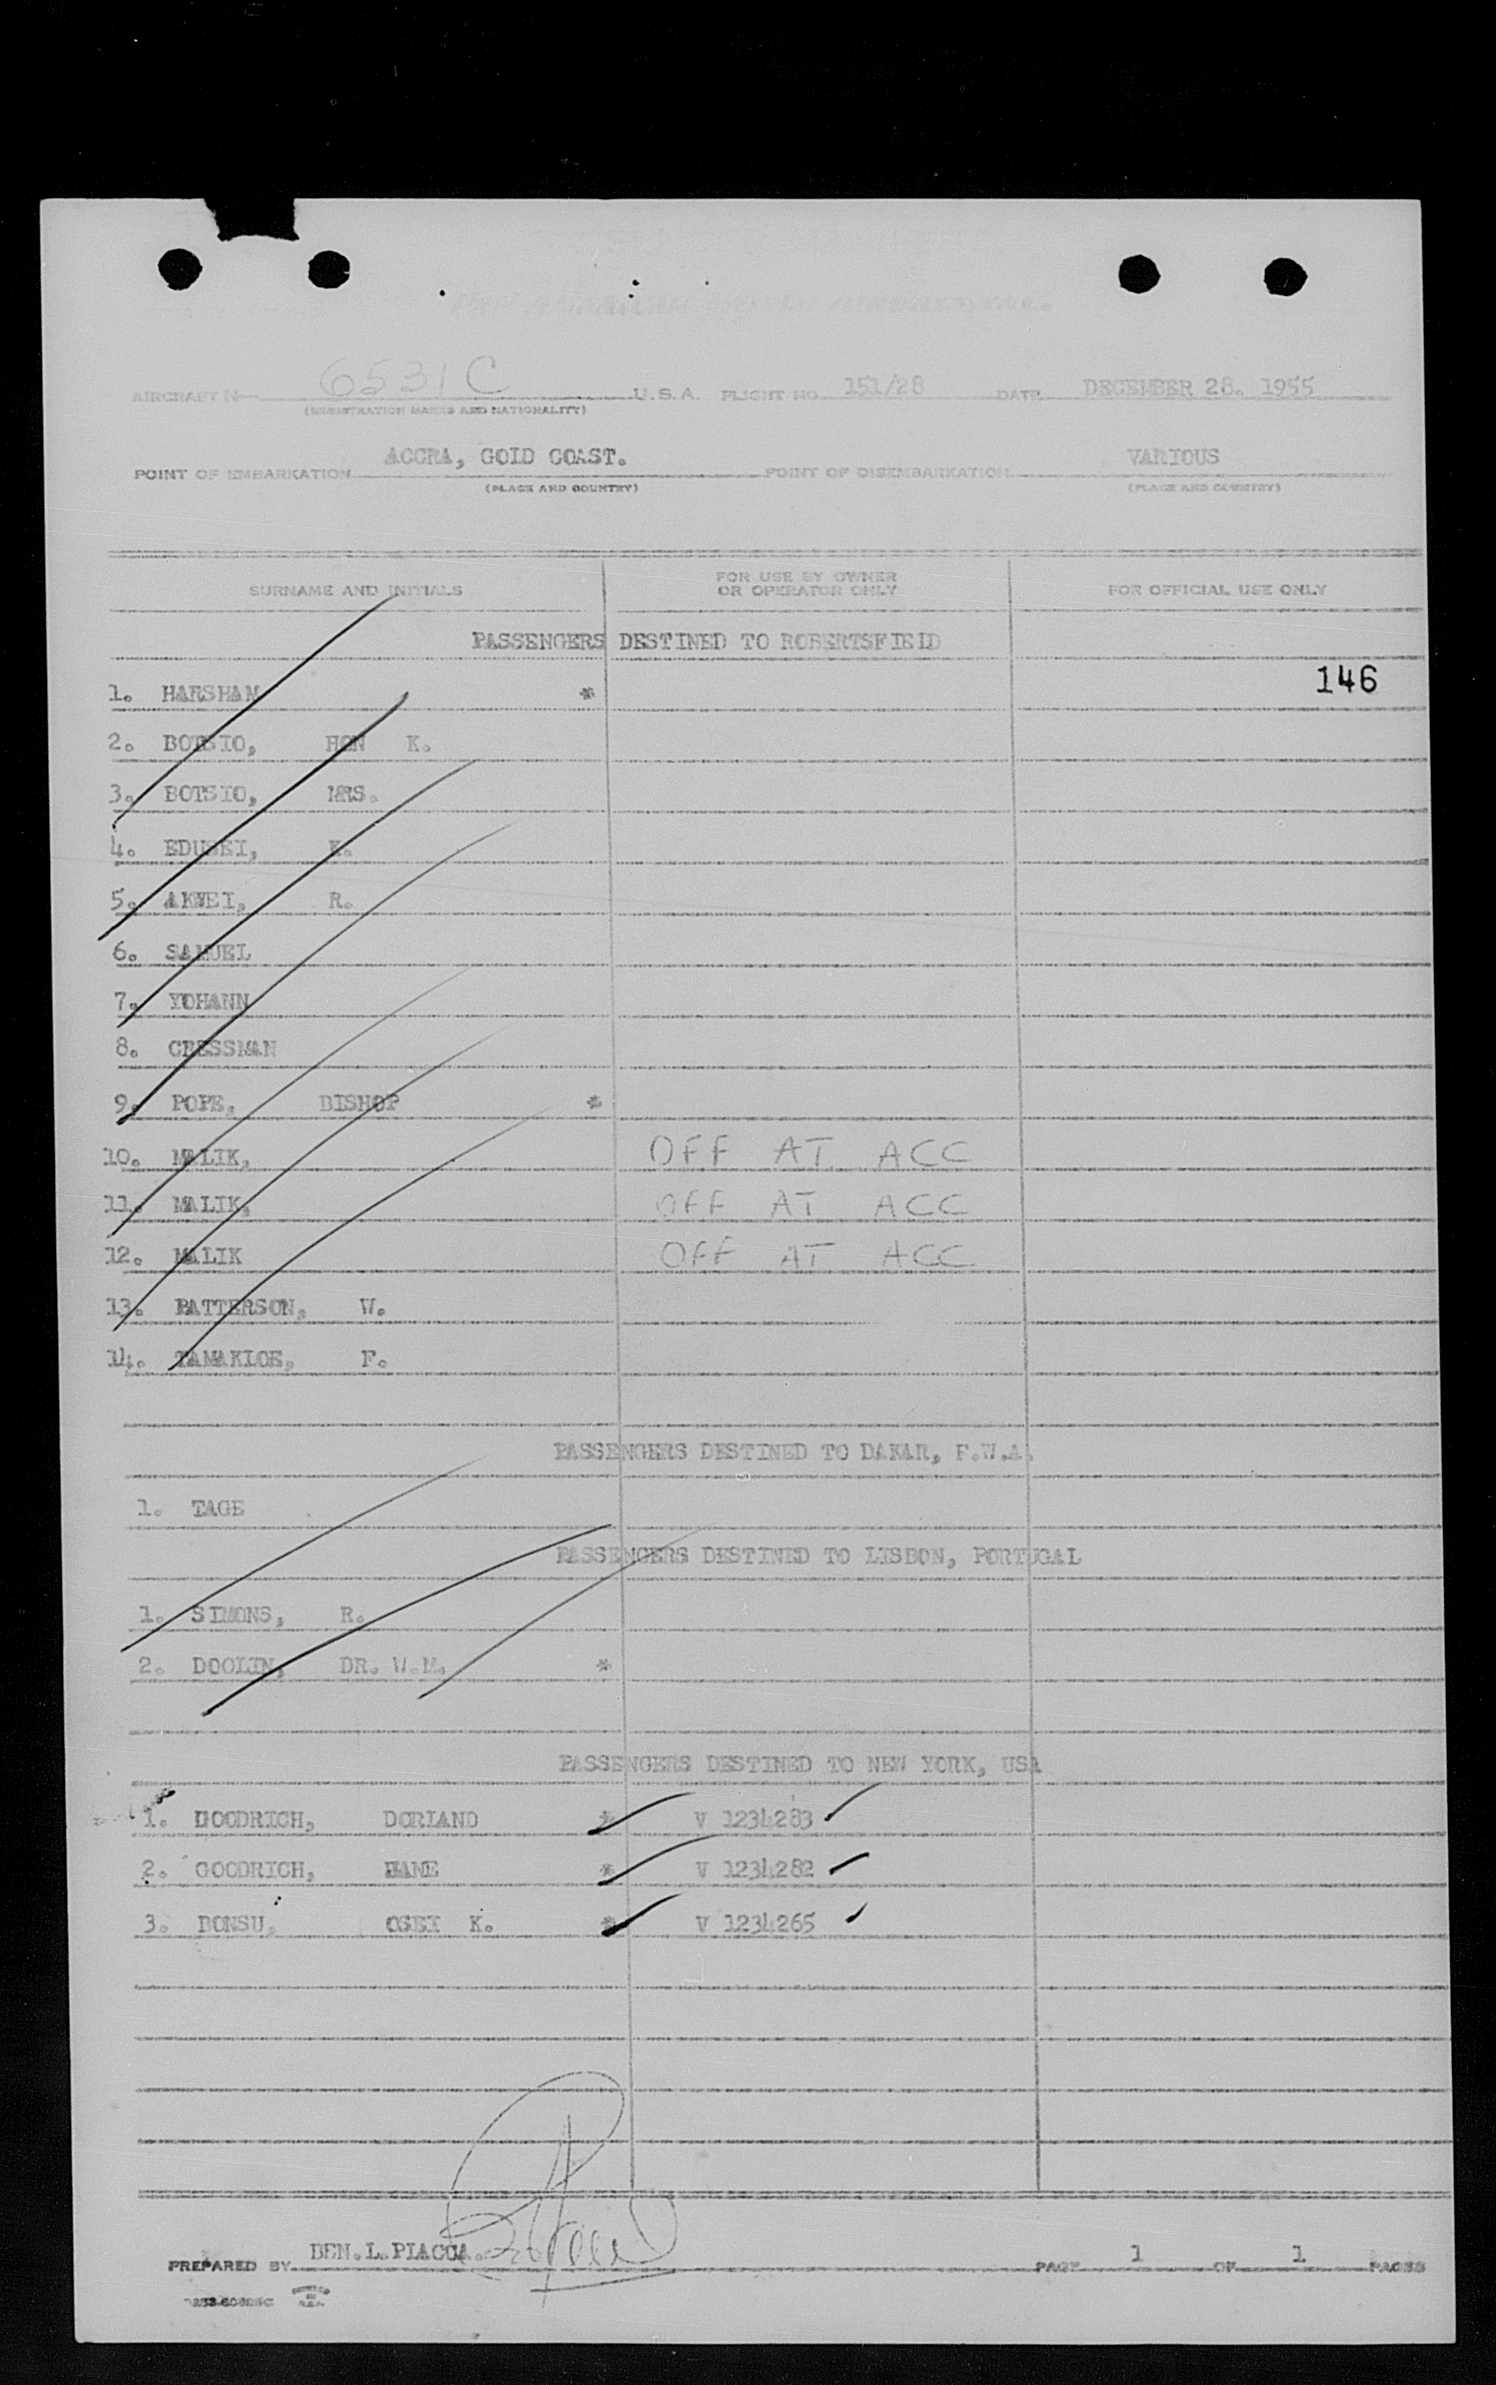 AIRCRAFT N 6531C U.S.A. FLIGHT NO. 151/28 DATE DECEMBER 28. 1955
(REGISTRATION MARKS AND NATIONALITY)
POINT OF EMBARKATION ACCRA, GOLD COAST. POINT OF DISEMBARKATION VARIOUS
(PLACE AND COUNTRY) (PLACE AND COUNTRY)
SURNAME AND INITIALS FOR USE BY OWNER OR OPERATOR ONLY FOR OFFICIAL USE ONLY
PASSENGERS DESTINED TO ROBERTSFIELD
146
1. HARSHAM *
2. BOTSIO, HON K.
3. BOTSIO, MRS.
4. EDUSEI, K.
5. AKWEI, R.
6. SAMUEL
7. YOHANN
8. CRESSMAN
9. POPE, BISHOP *
10. MALIK, OFF AT ACC
11. MALIK, OFF AT ACC
12. MALIK OFF AT ACC
13. PATTERSON, W.
14. TAMAKLOE, F.
PASSENGERS DESTINED TO DAKAR, F.W.A.
1. TAGE
PASSENGERS DESTINED TO LISBON, PORTUGAL
1. SIMONS, R.
2. DOOLIN, DR. W.M. *
PASSENGERS DESTINED TO NEW YORK, USA
1. GOODRICH, DORLAND * V 1234283
2. GOODRICH, * V 1234282
3. BONSU, OSEI K. * V 1234265
PREPARED BY BEN.L.PIACCA. PAGE 1 OF 1 PAGES
PRINTED IN U.S.A.